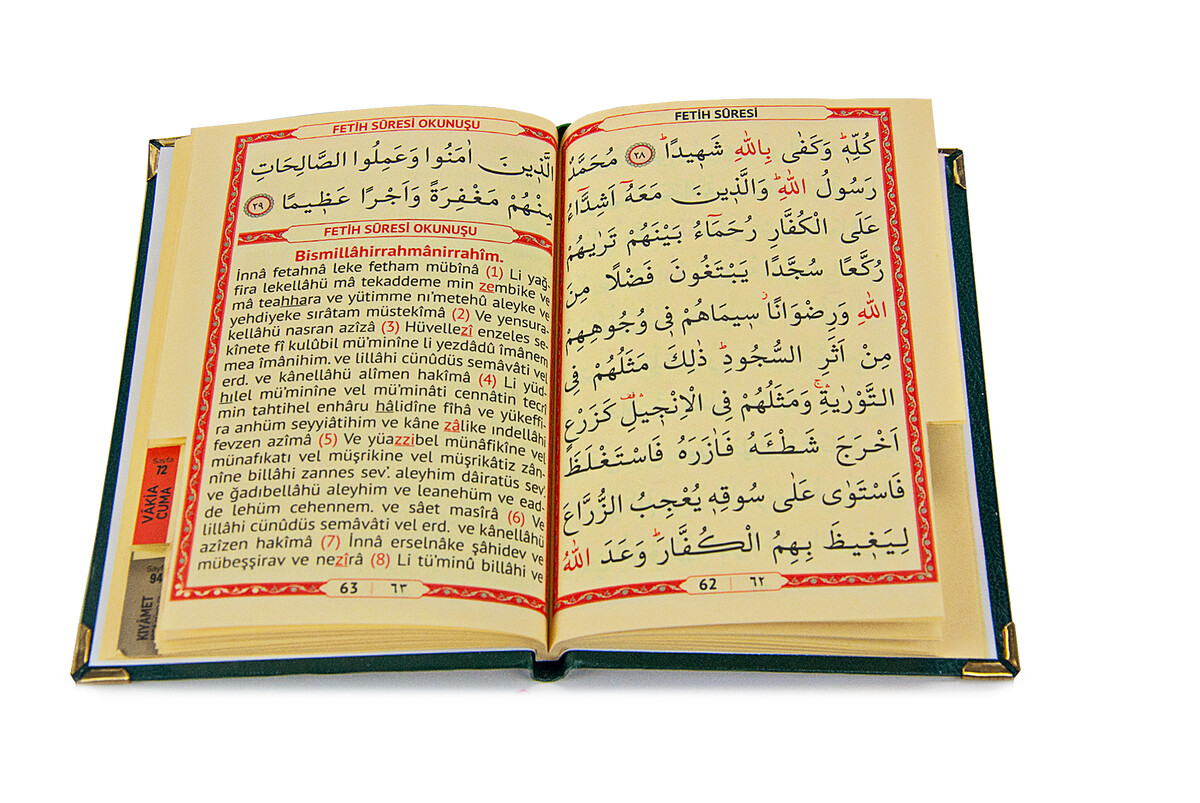 FETİH SÛRESİ
كُلِّهٖۜ وَكَفٰى بِاللّٰهِ شَهٖيدًاۜ ﴿٢٨﴾ مُحَمَّدٌ
رَسُولُ اللّٰهِۜ وَالَّذٖينَ مَعَهُٓ اَشِدَّٓاءُ
عَلَى الْكُفَّارِ رُحَمَٓاءُ بَيْنَهُمْ تَرٰيهُمْ
رُكَّعًا سُجَّدًا يَبْتَغُونَ فَضْلًا مِنَ
اللّٰهِ وَرِضْوَانًاۘ سٖيمَاهُمْ فٖى وُجُوهِهِمْ
مِنْ اَثَرِ السُّجُودِۜ ذٰلِكَ مَثَلُهُمْ فِى
التَّوْرٰيةِۚۛ وَمَثَلُهُمْ فِى الْاِنْجٖيلِ۠ۛ كَزَرْعٍ
اَخْرَجَ شَطْـَٔهُ فَاٰزَرَهُ فَاسْتَغْلَظَ
فَاسْتَوٰى عَلٰى سُوقِهٖ يُعْجِبُ الزُّرَّاعَ
لِيَغٖيظَ بِهِمُ الْكُفَّارَۜ وَعَدَ اللّٰهُ
62 ٦٢
FETİH SÛRESİ OKUNUŞU
الَّذٖينَ اٰمَنُوا وَعَمِلُوا الصَّالِحَاتِ
مِنْهُمْ مَغْفِرَةً وَاَجْرًا عَظٖيمًا ﴿٢٩﴾
FETİH SÛRESİ OKUNUŞU
Bismillâhirrahmânirrahîm.
İnnâ fetahnâ leke fetham mübînâ (1) Li yağ-
fira lekellâhü mâ tekaddeme min zembike ve
mâ teahhara ve yütimme nı'metehû aleyke ve
yehdiyeke sırâtam müstekîmâ (2) Ve yensura-
kellâhü nasran azîzâ (3) Hüvellezî enzeles se-
kînete fî kulûbil mü'minîne li yezdâdû îmânem
mea îmânihim. ve lillâhi cünûdüs semâvâti vel
erd. ve kânellâhü alîmen hakîmâ (4) Li yüd-
hılel mü'minîne vel mü'minâti cennâtin tecrî
min tahtihel enhâru hâlidîne fîhâ ve yükeffi-
ra anhüm seyyiâtihim ve kâne zâlike ındellâhi
fevzen azîmâ (5) Ve yüazzibel münâfikîne vel
münafıkatı vel müşrikîne vel müşrikâtiz zân-
nîne billâhi zannes sev'. aleyhim dâiratüs sev'
ve ğadıbellâhü aleyhim ve leanehüm ve ead-
de lehüm cehennem. ve sâet masîrâ (6) Ve
lillâhi cünûdüs semâvâti vel erd. ve kânellâhü
azîzen hakîmâ (7) İnnâ erselnâke şâhidev ve
mübeşşirav ve nezîrâ (8) Li tü'minû billâhi ve
63 ٦٣
Sayfa
72
VÂKİA
CUMA
94
KIYÂMET